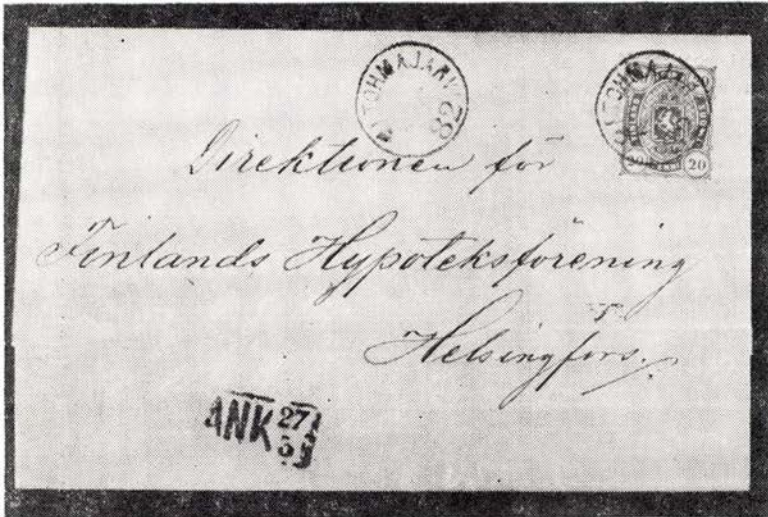 TOHMAJÄRVI
82
TOHMAJ
20 20
Direktionen för
Finlands Hypoteksförening
Helsingfors.
ANK 27